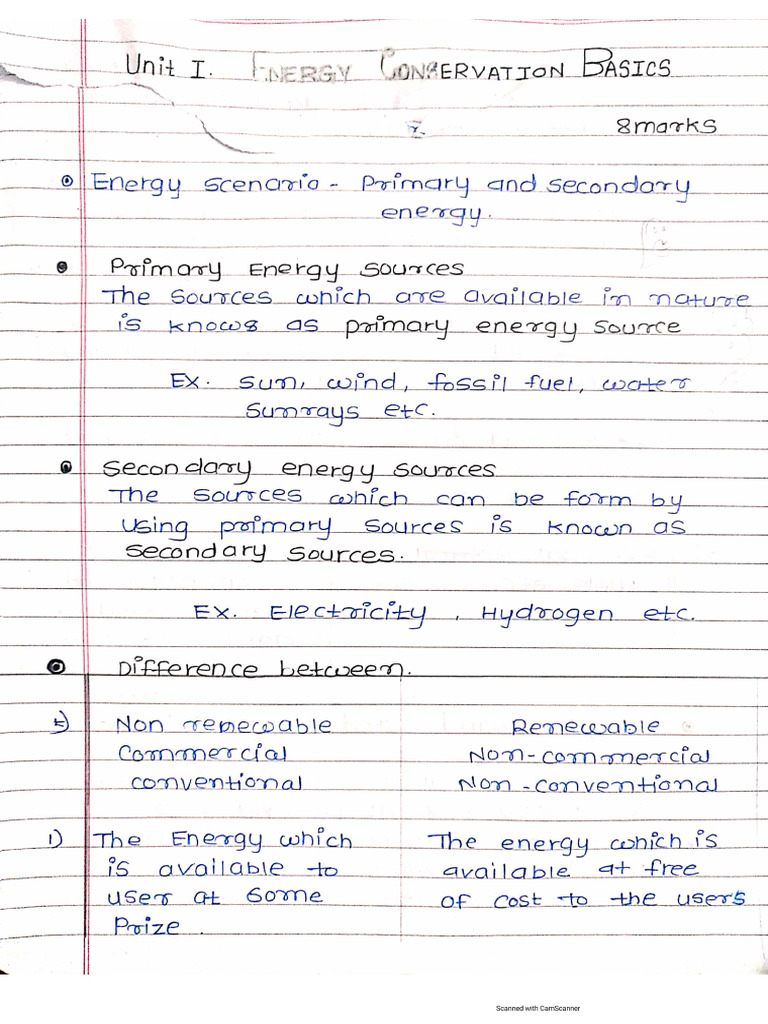 Unit I. ENERGY CONSERVATION BASICS
8marks
Energy scenario - Primary and secondary
energy.
Primary Energy sources
The sources which are available in nature
is knows as primary energy source
Ex. Sun, wind, fossil fuel, water
Sunrays etc.
Secondary energy sources
The sources which can be form by
using primary sources is known as
secondary sources.
Ex. Electricity , Hydrogen etc.
Difference between.
Non renewable Renewable
Commercial Non-commercial
conventional Non-conventional
1) The Energy which The energy which is
is available to available at free
user at some of cost to the users
Prize.
Scanned with CamScanner